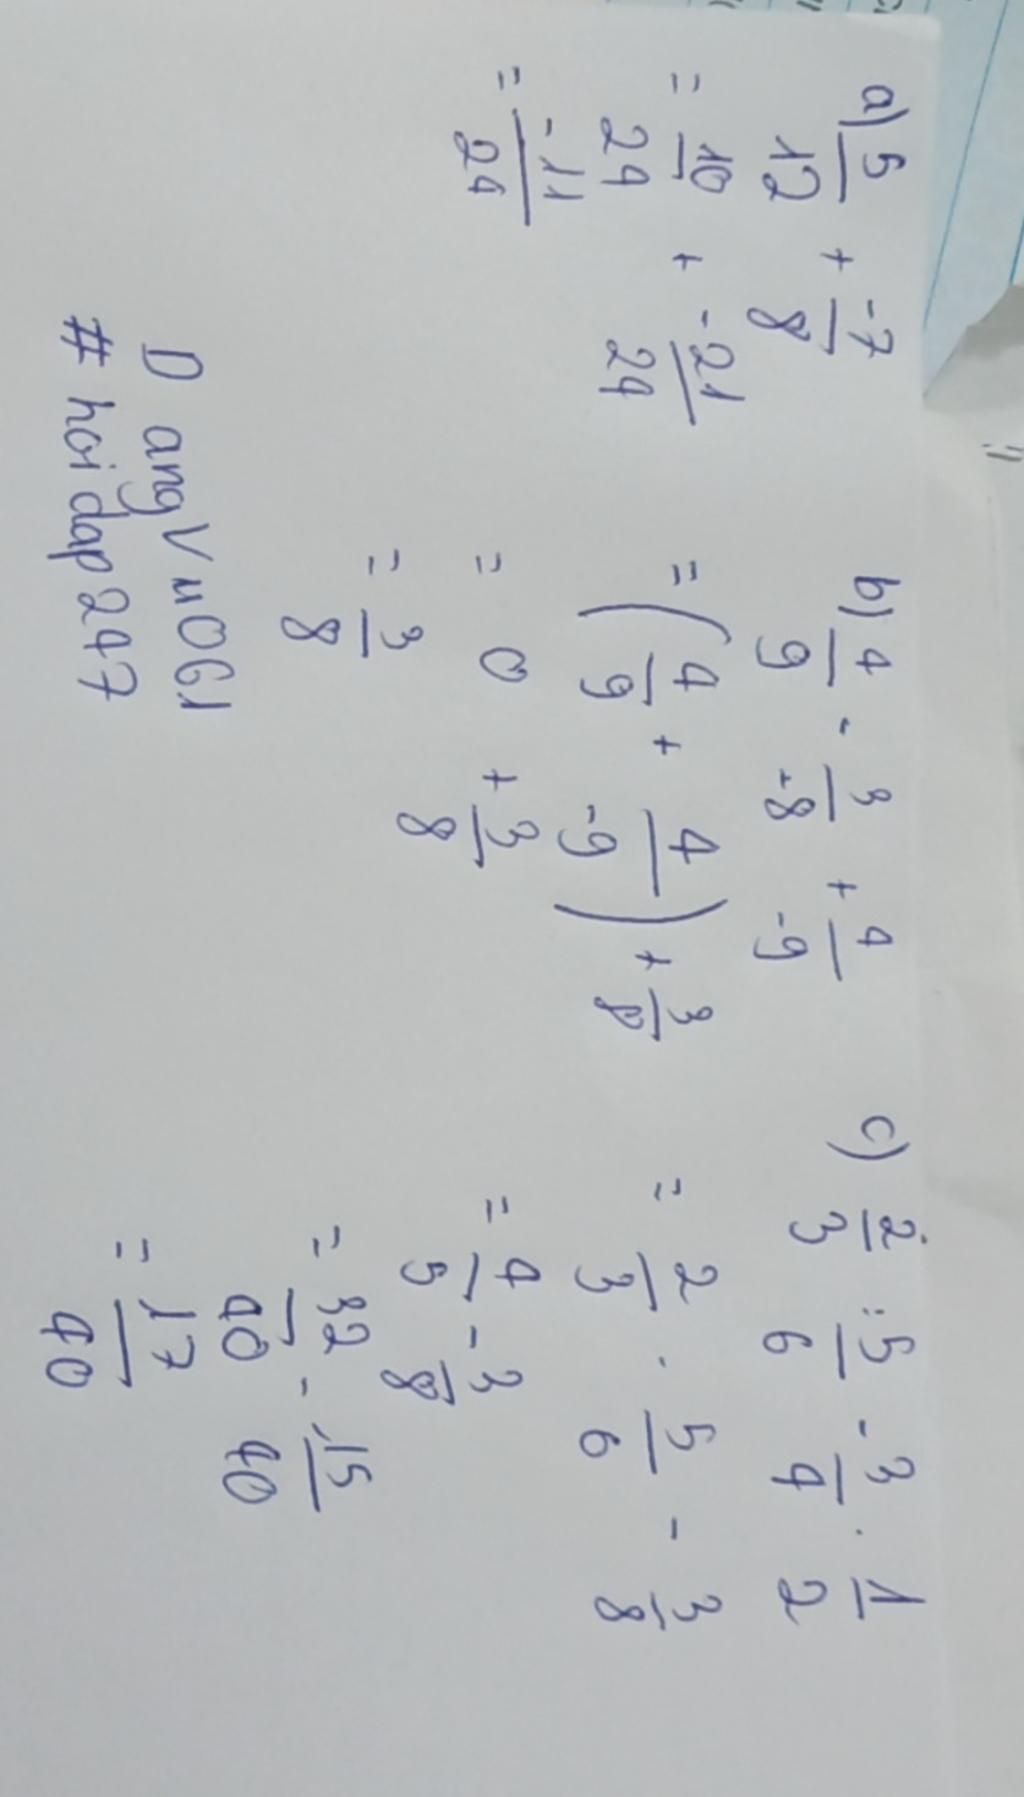 a) 5/12 + -7/8
= 10/24 + -21/24
= -11/24
b) 4/9 - 3/-8 + 4/-9
= (4/9 + 4/-9) + 3/8
= 0 + 3/8
= 3/8
c) 2/3 : 5/6 - 3/4 . 1/2
= 2/3 . 5/6 - 3/8
= 4/5 - 3/8
= 32/40 - 15/40
= 17/40
DangVu061
# hoidap247